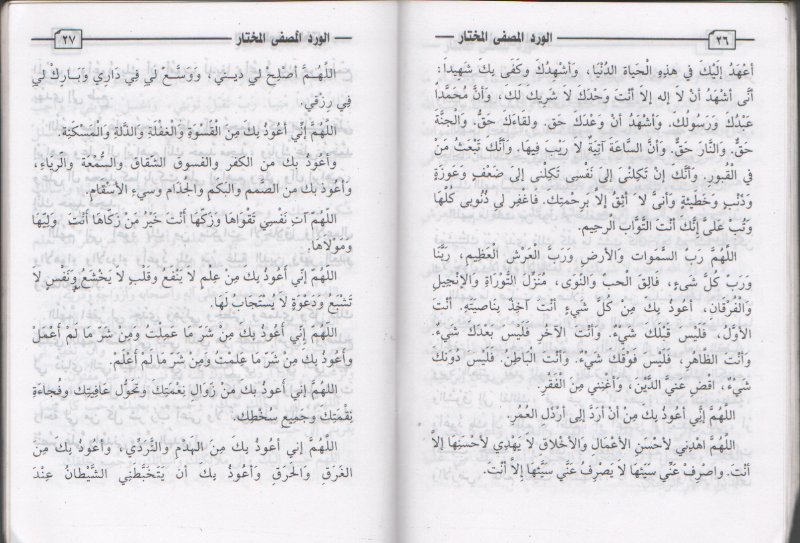 ٢٦ الورد المصفى المختار
أعهَدُ إلَيْكَ في هذِهِ الْحَيَاةِ الدُنْيَا، وَأشْهِدُكَ وَكَفَى بِكَ شَهِيداً:
أنَّى أشْهَدُ أنْ لاَ إله إلاَّ أنْتَ وَحْدَكَ لاَ شَرِيكَ لَكَ، وَأنَّ مُحَمَّدًا
عَبْدُكَ وَرَسُولُكَ. وَأشْهَدُ أنَّ وَعْدَكَ حَق. ولقاءَكَ حَقٌّ. وَالْجنَّة
حَقٌّ. وَالنَّارَ حَقٌّ. وَأنَّ السَّاعَةَ آتِيَةٌ لاَ رَيْبَ فِيهَا. وَأنَّكَ تَبْعَثُ مَنْ
في القُبورِ. وَأنَّكَ إنْ تَكِلْنى إلىَ نَفْسِى تَكِلْنى إلىَ ضَعْفٍ وَعَوَزَةٍ
وَذَنْبٍ وَخَطِيئَةٍ وَأنىَّ لاَ أثِقُ إلاَّ بِرَحْمَتِكَ. فَاغْفِر لى ذُنُوبى كُلَّهَا
وَتُبْ عَلىَّ إنَّكَ أنْتَ التَّوَّابُ الرحِيم.
اللَّهُمَّ رَبَّ السَّمَواتِ وَالأرْضِ وَرَبَّ الْعَرْشِ الْعَظِيم، رَبَّنَا
وَرَبَّ كُلَّ شىءٍ، فَالِقَ الْحَبِّ وَالنَّوَى، مُنَزَّلَ التَّوْرَاةِ وَالإنْجِيلِ
وَالْفُرْقَانِ، أعُوذُ بِكَ مِنْ كُلَّ شَيءٍ أنْتَ آخِذٌ بِنَاصِيَتِهِ. أنْتَ
الأوَّلُ، فَلَيْسَ قَبْلَكَ شَيْءٌ. وَأنْتَ الآخِرُ فَلَيْسَ بَعْدَكَ شَيْءٌ.
وَأنْتَ الظَّاهِرُ، فَلَيْسَ فَوْقَكَ شَيْءٌ. وَأنْتَ الْبَاطِنُ فَلَيْسَ دُونَكَ
شَيْءٌ، اقْضِ عَنيَّ الدَّيْنَ، وَأغْنِنِي مِنَ الْفَقْرِ.
اللَّهُمَّ إنِّي أعُوذُ بِكَ مِنْ أنْ أرَدَّ إلى أرْذَلِ العُمُرِ.
اللَّهُمَّ اهْدِنِي لأحْسَنِ الأعْمَالِ وَالأخْلاَقِ لاَ يَهْدِي لأحْسَنِهَا إلاَّ
أنْتَ. واصرِفْ عَنِّي سَيَّئَهَا لاَ يَصْرِفُ عَنِّي سَيَّئَهَا إلاَّ أنْتَ.
الورد المصفى المختار ٢٧
اللَّهُمَّ أصْلِحْ لي ديني، وَوَسَّعْ لي فِي دَارِي وَبَارِكْ لي
فِي رِزْقي.
اللَّهُمَّ إنِّي أعُوذُ بكَ مِنَ القَسْوَةِ وَالْغَفْلَةِ وَالذَّلَّةِ وَالْمَسْكَنَةِ.
وأعُوذُ بِكَ من الكفرِ والفسوقِ الشقاقِ وَالسُّمْعَةِ وَالرِّياءِ،
وَأعُوذُ بِكَ مِنَ الصَّمَمِ والبَكَمِ وَالْجذَامِ وسيءِ الأسْقَامِ.
اللَّهُمَّ آتِ نَفْسِي تَقْوَاهَا وَزَكَّهَا أنْتَ خَيْرُ مَنْ زَكَاهَا أنْتَ وَلِيَّهَا
وَمَوْلاَهَا.
اللَّهُمَّ إنِّي أعُوذُ بِكَ مِنْ عِلْمٍ لا يَنْفَعُ وقَلْبٍ لاَ يَخْشَعُ وَنَفْسٍ لا
تَشْبَعُ وَدَعْوَةٍ لاَ يُسْتَجَابُ لَهَا.
اللَّهُمَّ إنِّي أعُوذُ بِكَ مِنْ شَرَّ مَا عَمِلْتُ وَمِنْ شَرَّ مَا لَمْ أعْمَلْ
وأعُوذُ بِكَ مِنْ شَرَّ مَا عَلِمْتُ وَمِنْ شَرَّ مَا لَمْ أعْلَمْ.
اللهُمَّ إني أعُوذُ بكَ مَنْ زَوَالِ نِعْمَتِكَ وَتَحَوُّلِ عَافِيَتِكَ وفُجاءَةِ
نِقْمَتِكَ وجَمِيعِ سُخْطِكَ.
اللَّهُمَّ إني أعُوذُ بِكَ مِنَ الْهَدْمِ وَالتَّرَدِّي، وأعُوذُ بِكَ مِنَ
الغَرَقِ وَالْحَرَقِ وَأعُوذُ بِكَ أنْ يَتَخَبَّطَنِي الشَّيْطَانُ عِنْدَ